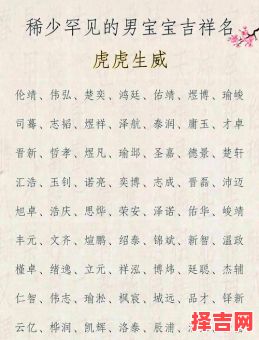 稀少罕见的男宝宝吉祥名
虎虎生威
伦靖、伟弘、楚奕、鸿廷、佑靖、煜博、瑜峻
司蓦、志韬、煜祥、泽航、泰润、庸玉、才卓
晋新、哲孝、煜凡、瑜邿、圣嘉、德景、楚轩
汇浩、玉钊、诺亮、奕博、志成、晋磊、沛迈
旭卓、浩庆、思烨、荣安、泽诺、佑华、峻靖
丰元、文齐、煊鹏、绍泰、锦斌、新智、温政
槿卓、绪逸、立元、祥泓、博炜、廷聪、杰辅
仁智、伟志、瑜淞、枫宸、城远、品才、铎新
云亿、桦润、凯辉、洛泰、辰浦、
择吉网